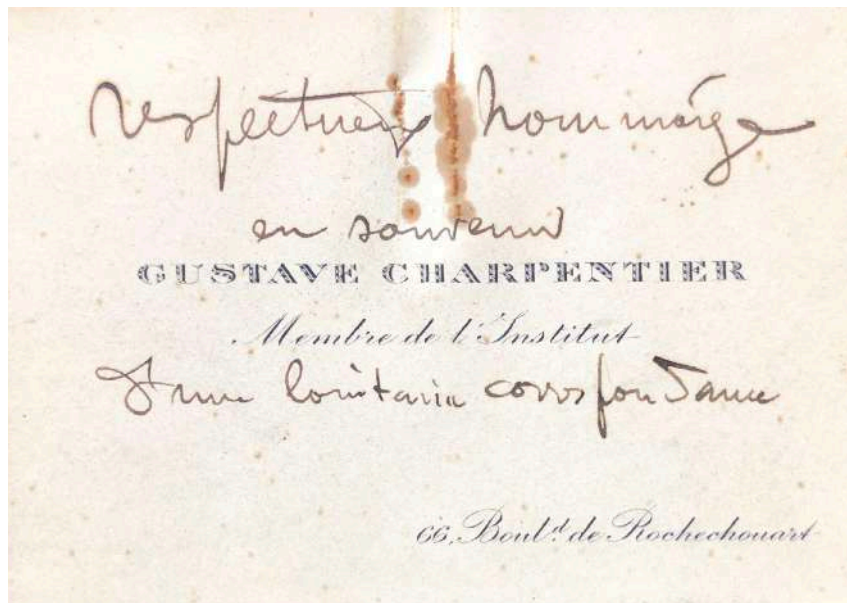 respectueux hommage
en souvenir
GUSTAVE CHARPENTIER
Membre de l'Institut
d'une lointaine correspondance
66, Boul.d de Rochechouart